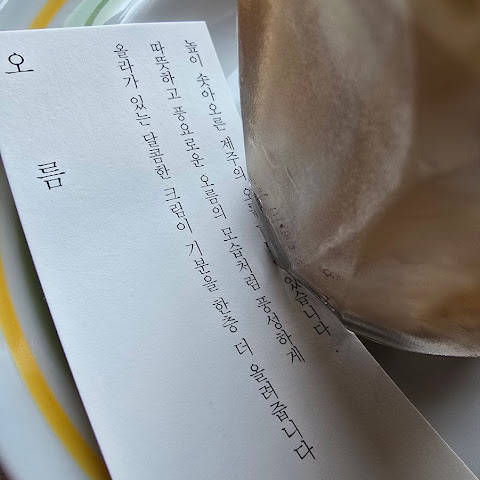 오름
높이 솟아오른 제주의 있습니다
따뜻하고 풍요로운 오름의 모습처럼 풍성하게
올라가 있는 달콤한 크림이 기분을 한층 더 올려줍니다